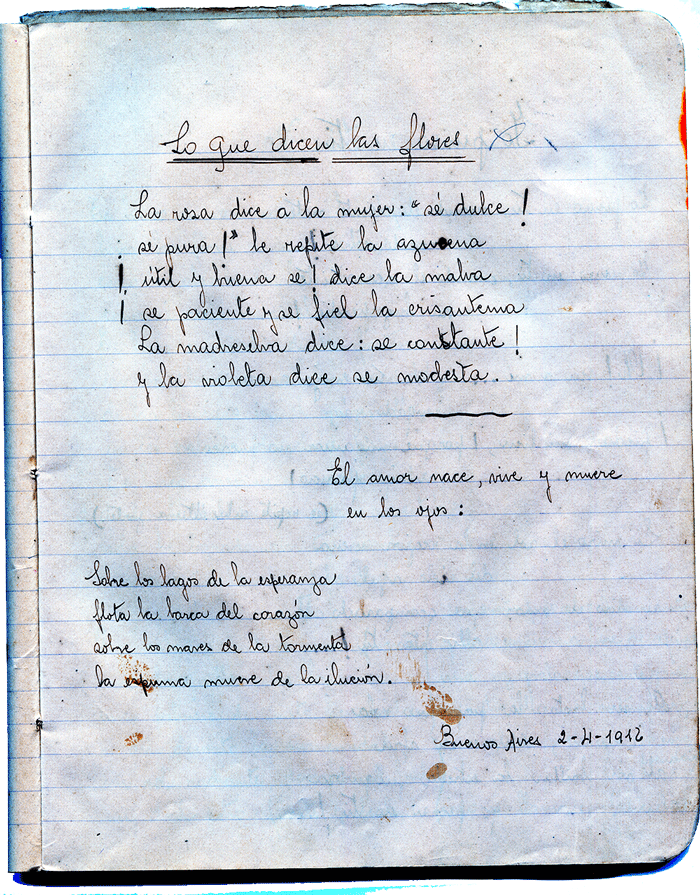 Lo que dicen las flores
La rosa dice à la mujer: "sé dulce!
sé pura!" le repite la azucena
¡útil y buena se! dice la malva
¡se paciente y se fiel la crisantema
La madreselva dice: se constante!
y la violeta dice se modesta.
El amor nace, vive y muere
en los ojos:
Sobre los lagos de la esperanza
flota la barca del corazón
sobre los mares de la tormenta
la espuma muere de la ilución.
Buenos Aires 2-4-1916